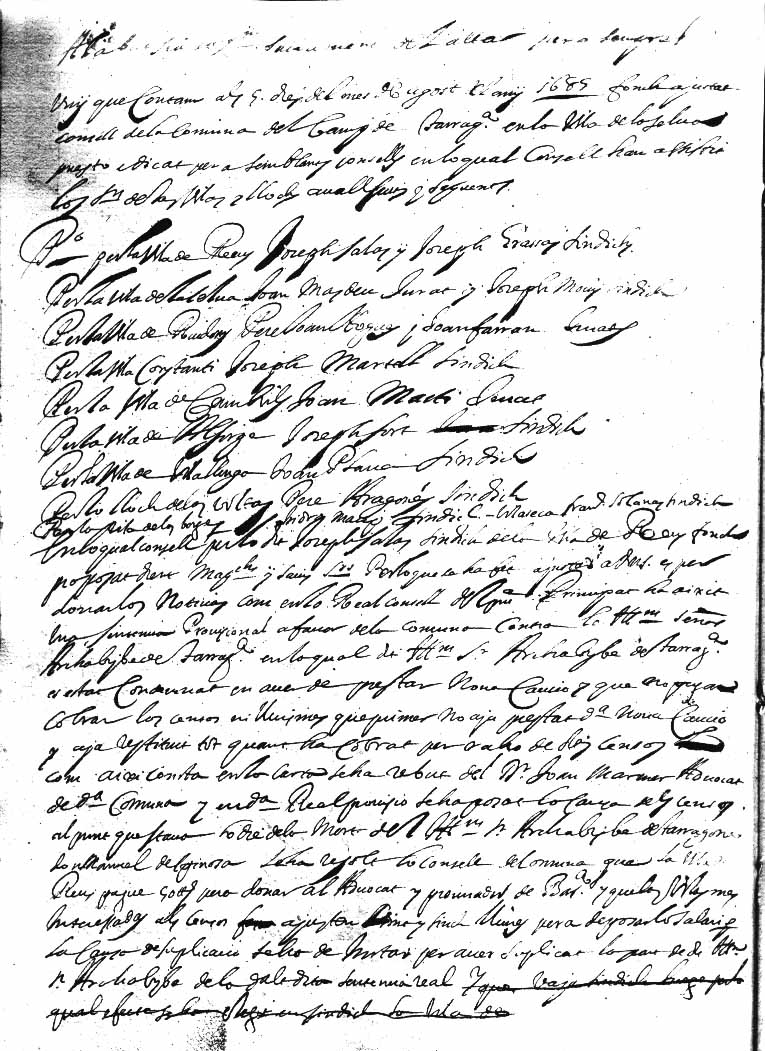 Alabat sia lo S.m Sacrament de l altar pera sempre
Vuy que Contam als 5 dies del mes de Agost del any 1685 fonch ajustat
consell de la Comuna del Camp de Tarrag.a en la Vila de la Selva
puesto i dicat pera semblans consells en lo qual Consell han assistit
los S.rs de las Vilas y llochs avall scrits y seguents.
P.o per la Vila de Reus Joseph Salas y Joseph Grasses Sindichs
Per la Vila de la Selva Joan Magdeu Jurat y Joseph Moix sindich
Per la Vila de Riudoms Pere Joan y Joan farran Jurats
Per la Vila Constanti Joseph Martell Sindich
Per la Vila de Cambrils Joan Marti Jurat
Per la Vila de Alforja Joseph fort Sindich
Per la Vila de Vallmoga Joan Plana Sindich
Per lo lloch de las Voltas Pere Aragonés Sindich
Per la Vila de las borjas Isidro Marti Sindich - Vilaseca fran.o Solanas Sindich
En lo qual consell per lo dit Joseph Salas Sindich de la Vila de Reus fonch
proposat dient Mag.chs y Savis S.rs Per lo que se ha fet ajustar a V.Ms. es per
donarlos Noticia com en lo Real consell del pnt Principat ha aixit
una sentencia Provisional a favor de la comuna Contra lo Ill.m señor
Archabisbe de Tarrag.a en lo qual dit Ill.m S.r Archabisbe de Tarrag.a
es estat Condemnat en aver de prestar Nova Caucio y que no pugan
cobrar los censos ni lluismes que primer no aja prestat d.a nova Caucio
y aja restituit tot quant ha Cobrat per raho de dits censos
com aixi consta en la Carta se ha rebut del D.r Joan Marmer Advocat
de d.a Comuna y en d.a Real provisio se ha posat la Causa dels censos
al punt que stava lo die de la Mort del Ill.m S.r Archabisbe de Tarragona
don Manuel de Espinosa se ha resolt lo Consell de Comuna que la Vila
Reus pague pera donar al Advocat y procurador de Bar.a y que las Vilas mes
interessadas als censos ajusten sinch lliures pera deposar lo salari p
la Causa de suplicacio se ha de Instar per aver suplicat la part de dit Ill.m
S.r Archabisbe de la paledita sentencia real y que vaja sindich
qual efecte se ha elegit en sindich la Vila de